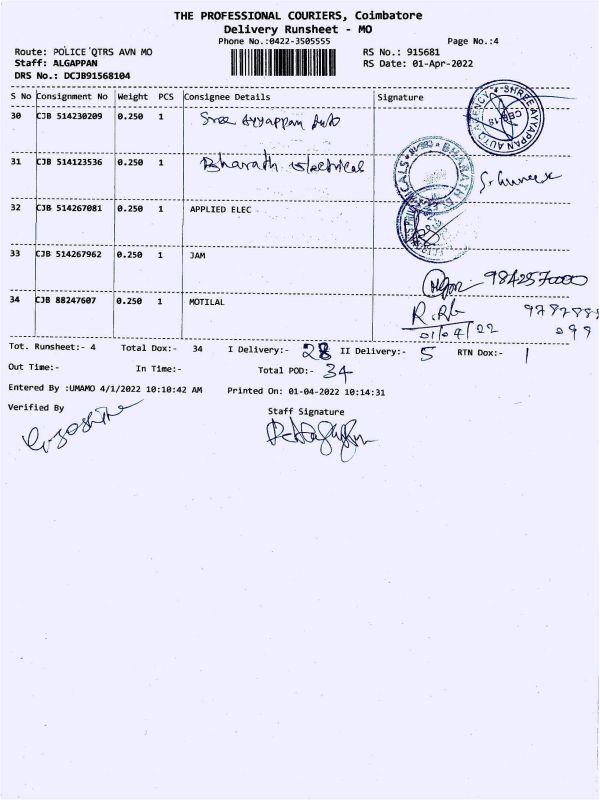 THE PROFESSIONAL COURIERS, Coimbatore
Delivery Runsheet - MO
Phone No.:0422-3505555
Page No.:4
Route: POLICE QTRS AVN MO
RS No.: 915681
Staff: ALGAPPAN
RS Date: 01-Apr-2022
DRS No.: DCJB91568104
S No Consignment No Weight PCS Consignee Details Signature
30 CJB 514230209 0.250 1 Sree Ayyappan Auto
SHREE AYYAPPAN AUTO AGENCY
31 CJB 514123536 0.250 1 Bharath electrical
32 CJB 514267081 0.250 1 APPLIED ELEC
33 CJB 514267962 0.250 1 JAM
34 CJB 88247607 0.250 1 MOTILAL
01/04/22
099
Tot. Runsheet:- 4 Total Dox:- 34 I Delivery:- 28 II Delivery:- 5 RTN Dox:- 1
Out Time:- In Time:- Total POD:- 34
Entered By :UMAMO 4/1/2022 10:10:42 AM Printed On: 01-04-2022 10:14:31
Verified By Staff Signature